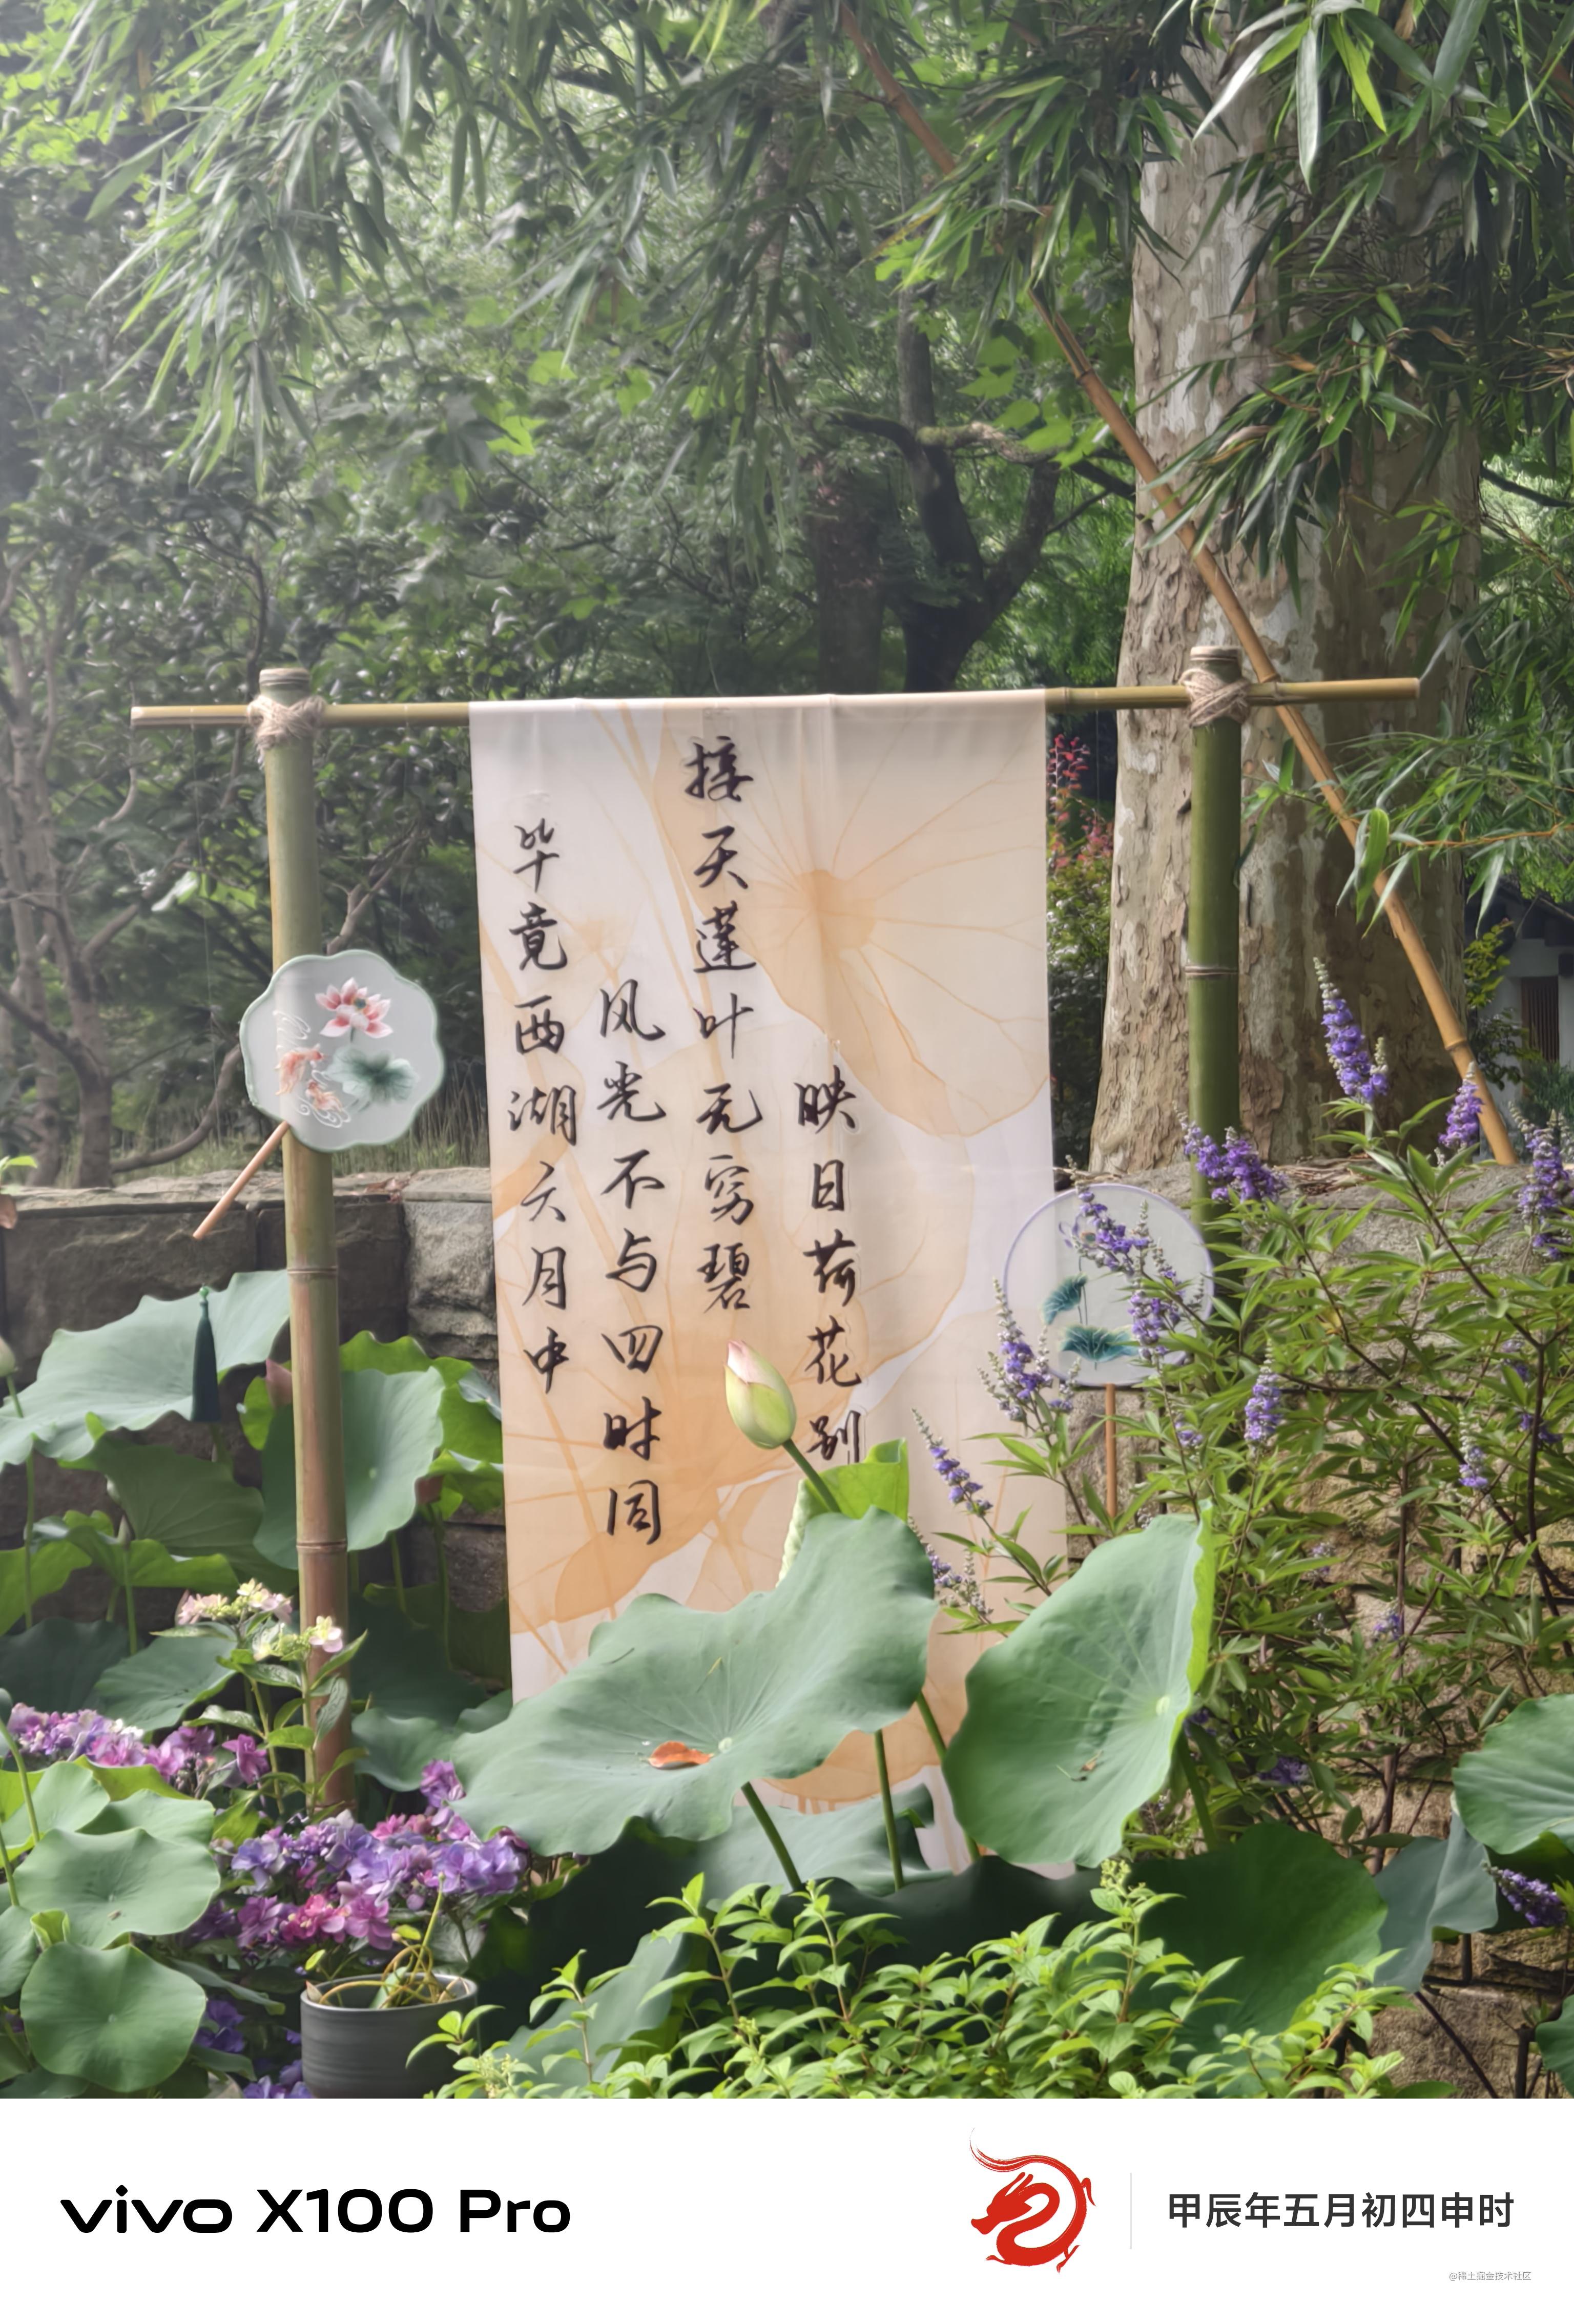 毕竟西湖六月中
风光不与四时同
接天莲叶无穷碧
映日荷花别
vivo X100 Pro
甲辰年五月初四申时
@稀土掘金技术社区